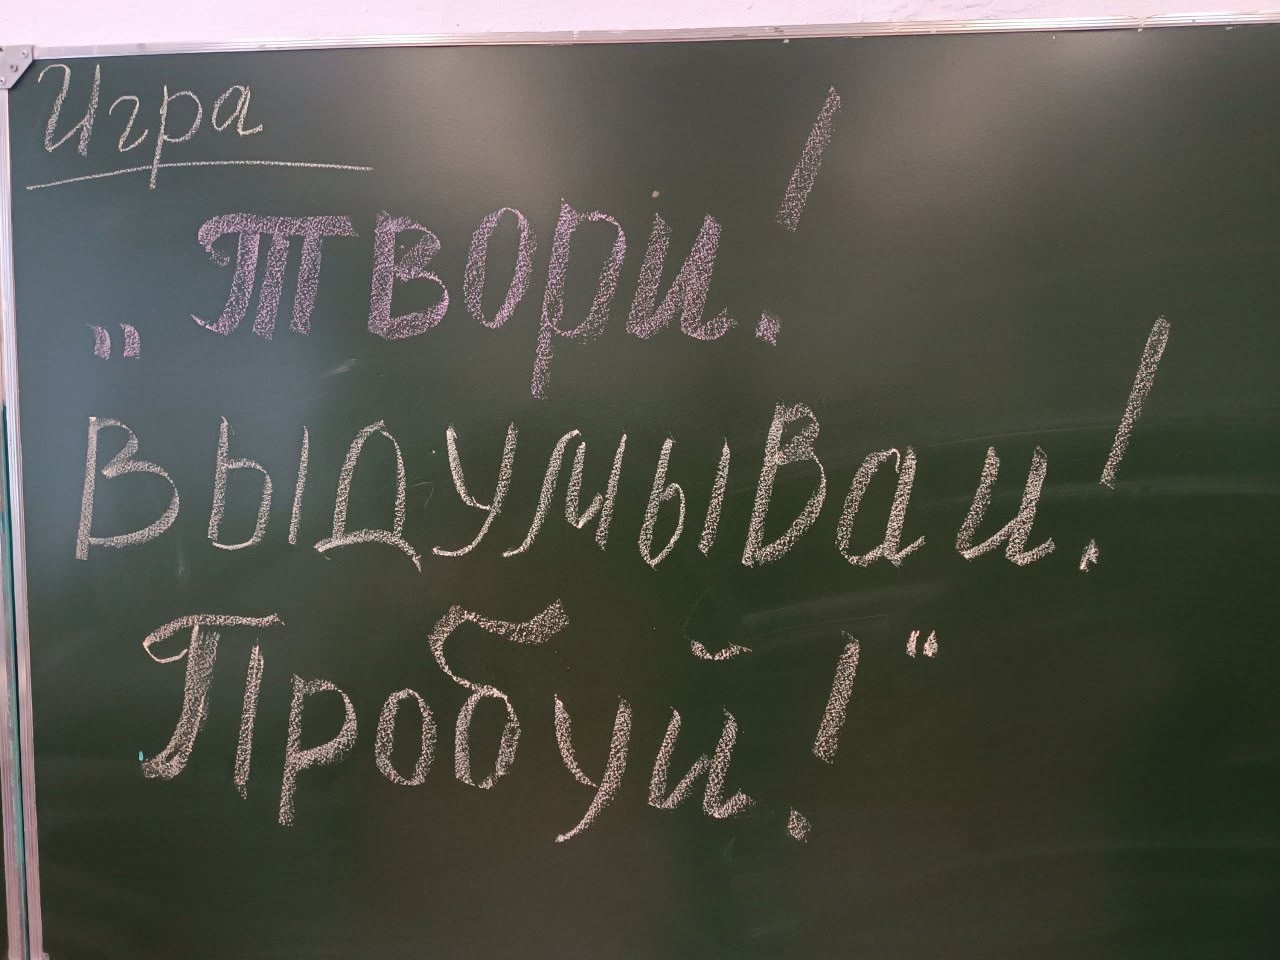 Игра
„Твори!
Выдумываи!
Пробуй!“